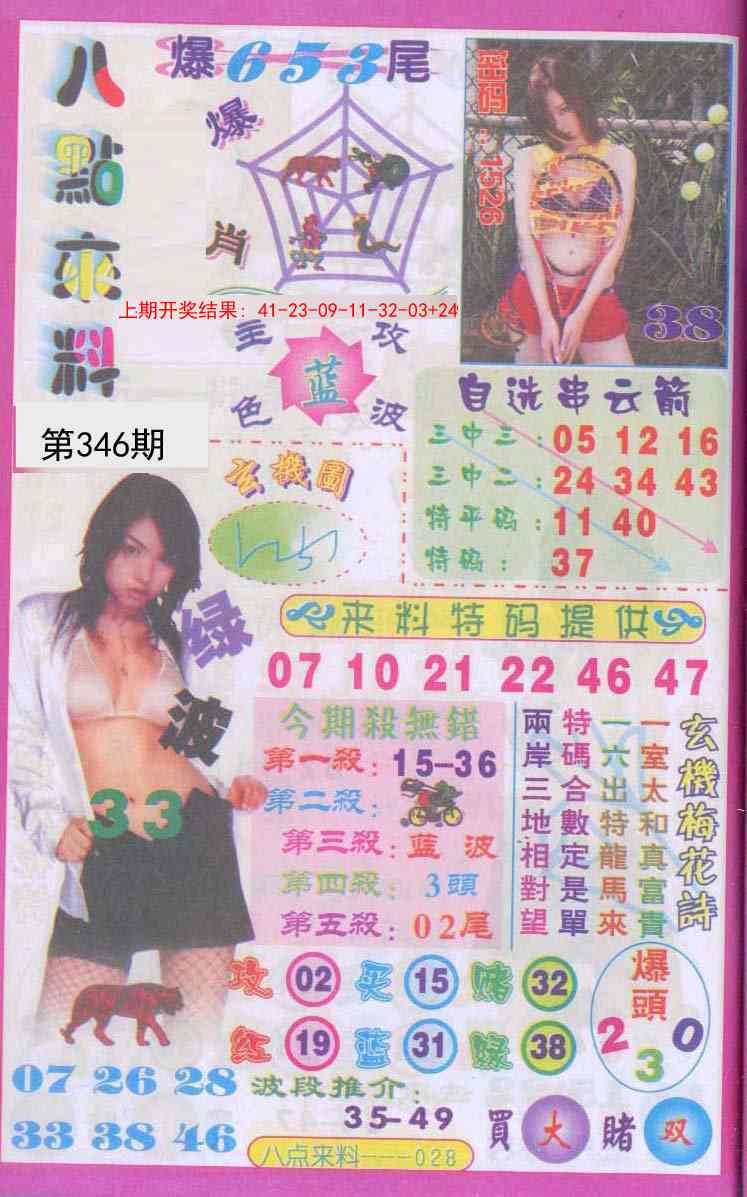 八點來料
爆653尾
爆肖
密码：1526
38
上期开奖结果：41-23-09-11-32-03+24
主攻
蓝
色波
第346期
自选串云箭
三中三：05 12 16
三中二：24 34 43
特平码：11 40
特码：37
玄機圖
来料特码提供
07 10 21 22 46 47
绿波
33
今期殺無錯
第一殺：15-36
第二殺：
第三殺：蓝 波
第四殺：3頭
第五殺：02尾
玄機梅花詩
一室太和真富貴
一六出特龍馬來
特碼合數定是單
兩岸三地相對望
攻 02 买 15 赌 32
红 19 蓝 31 绿 38
爆頭
2 3 0
07 26 28
33 38 46
波段推介：
35-49
買 大 賭 双
八点来料---028